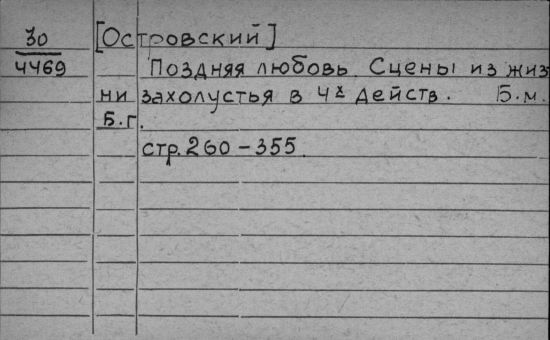 30 [Островский]
4469 Поздняя любовь. Сцены из жиз
ни захолустья в 4х действ. Б.м.
Б.г.
стр. 260-355.